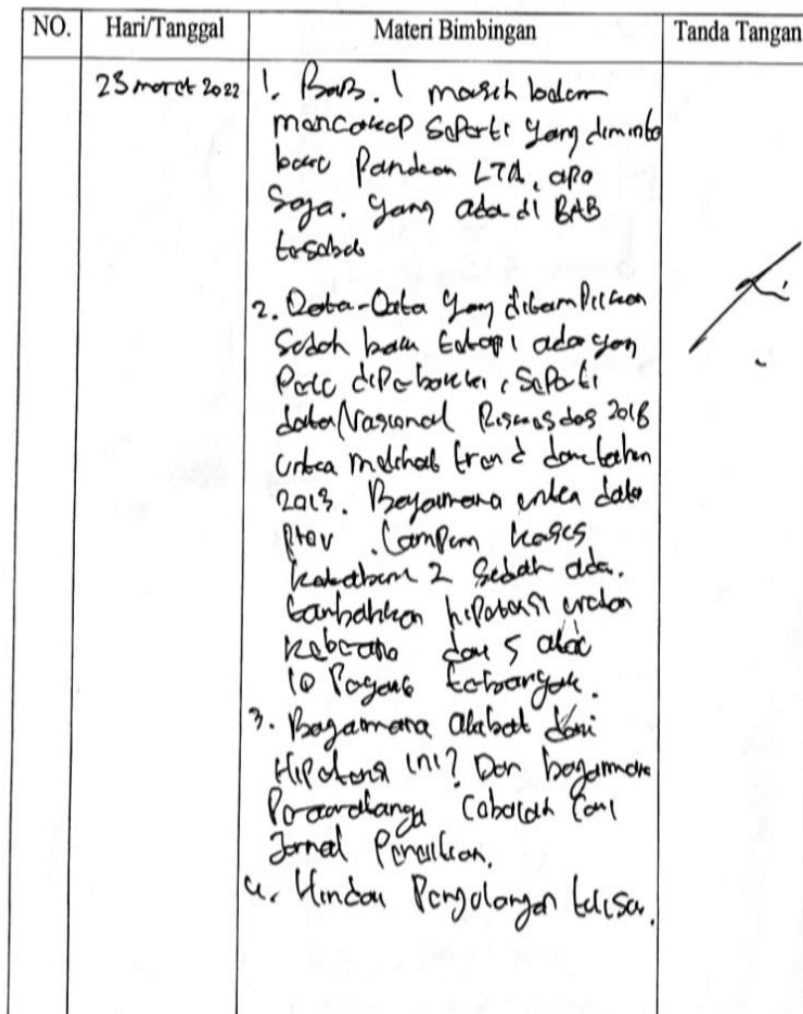 NO. Hari/Tanggal Materi Bimbingan Tanda Tangan
23 maret 2022
1. BAB. 1 masih belum
mencakup seperti yang diminta
Panduan LTA, apa
saja. yang ada di BAB
tersebut
2. Data-Data yang ditampilkan
sudah baru tetapi ada yan
perlu diperbaiki, seperti
data Nasional Riskesdas 2018
untuk melihat trend dari tahun
2013. Bagaimana untuk data
prov. Lampung kasus
2 sudah ada.
tambahkan hipotensi
dari 5 atau
10 terbanyak.
3. Bagaimana akibat dari
ini? Dan bagaimana
cari
Jurnal Penelitian.
4. Hindari Pengulangan tulisan.